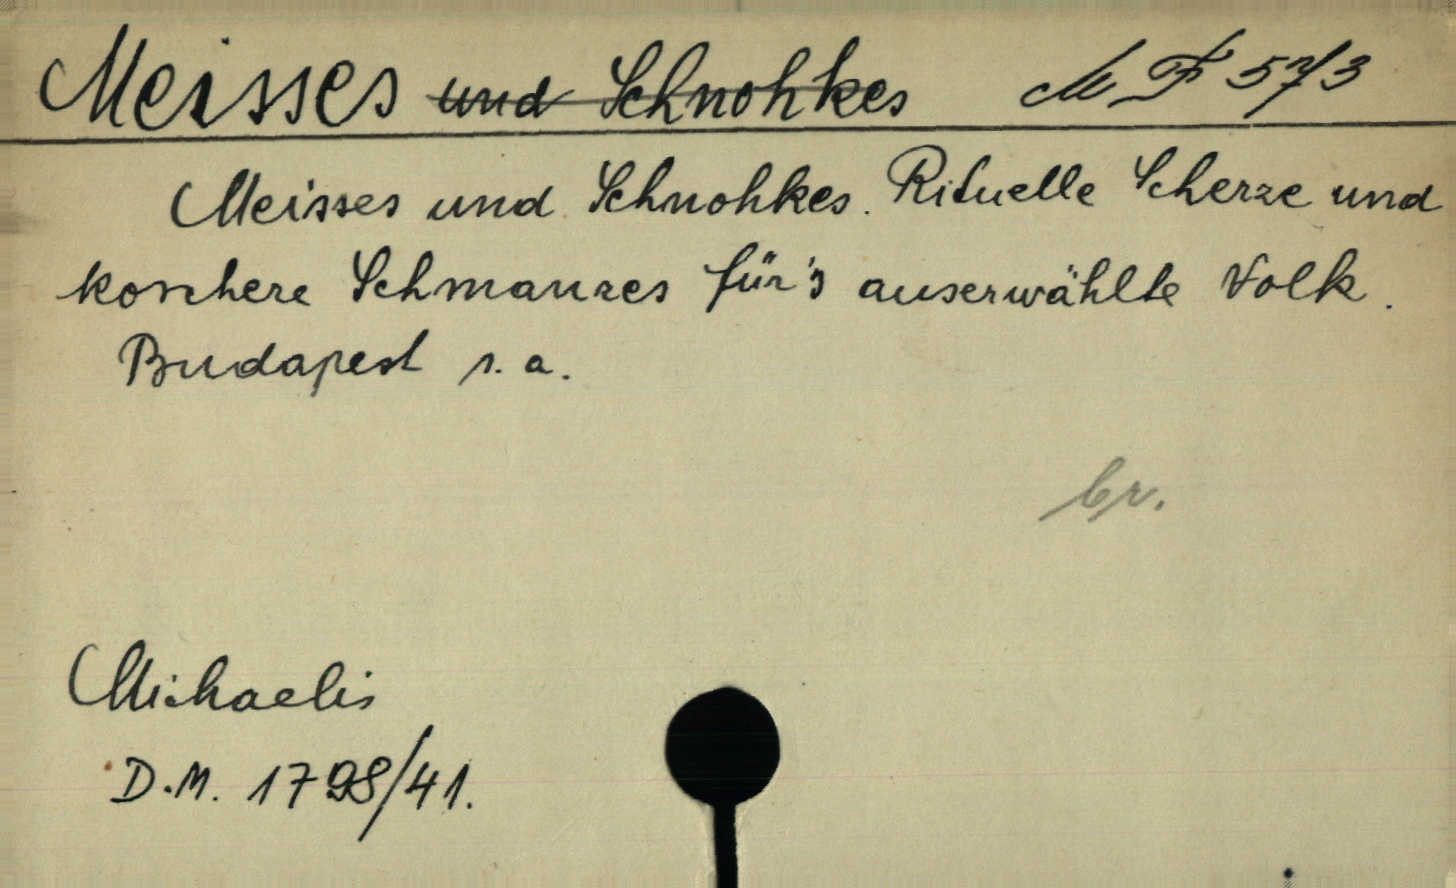 Meisses und Schnohkes M F 573
Meisses und Schnohkes. Rituelle Scherze und
koschere Schmanzes für's auserwählte Volk.
Budapest s. a.
br.
Michaelis
D.M. 1798/41.